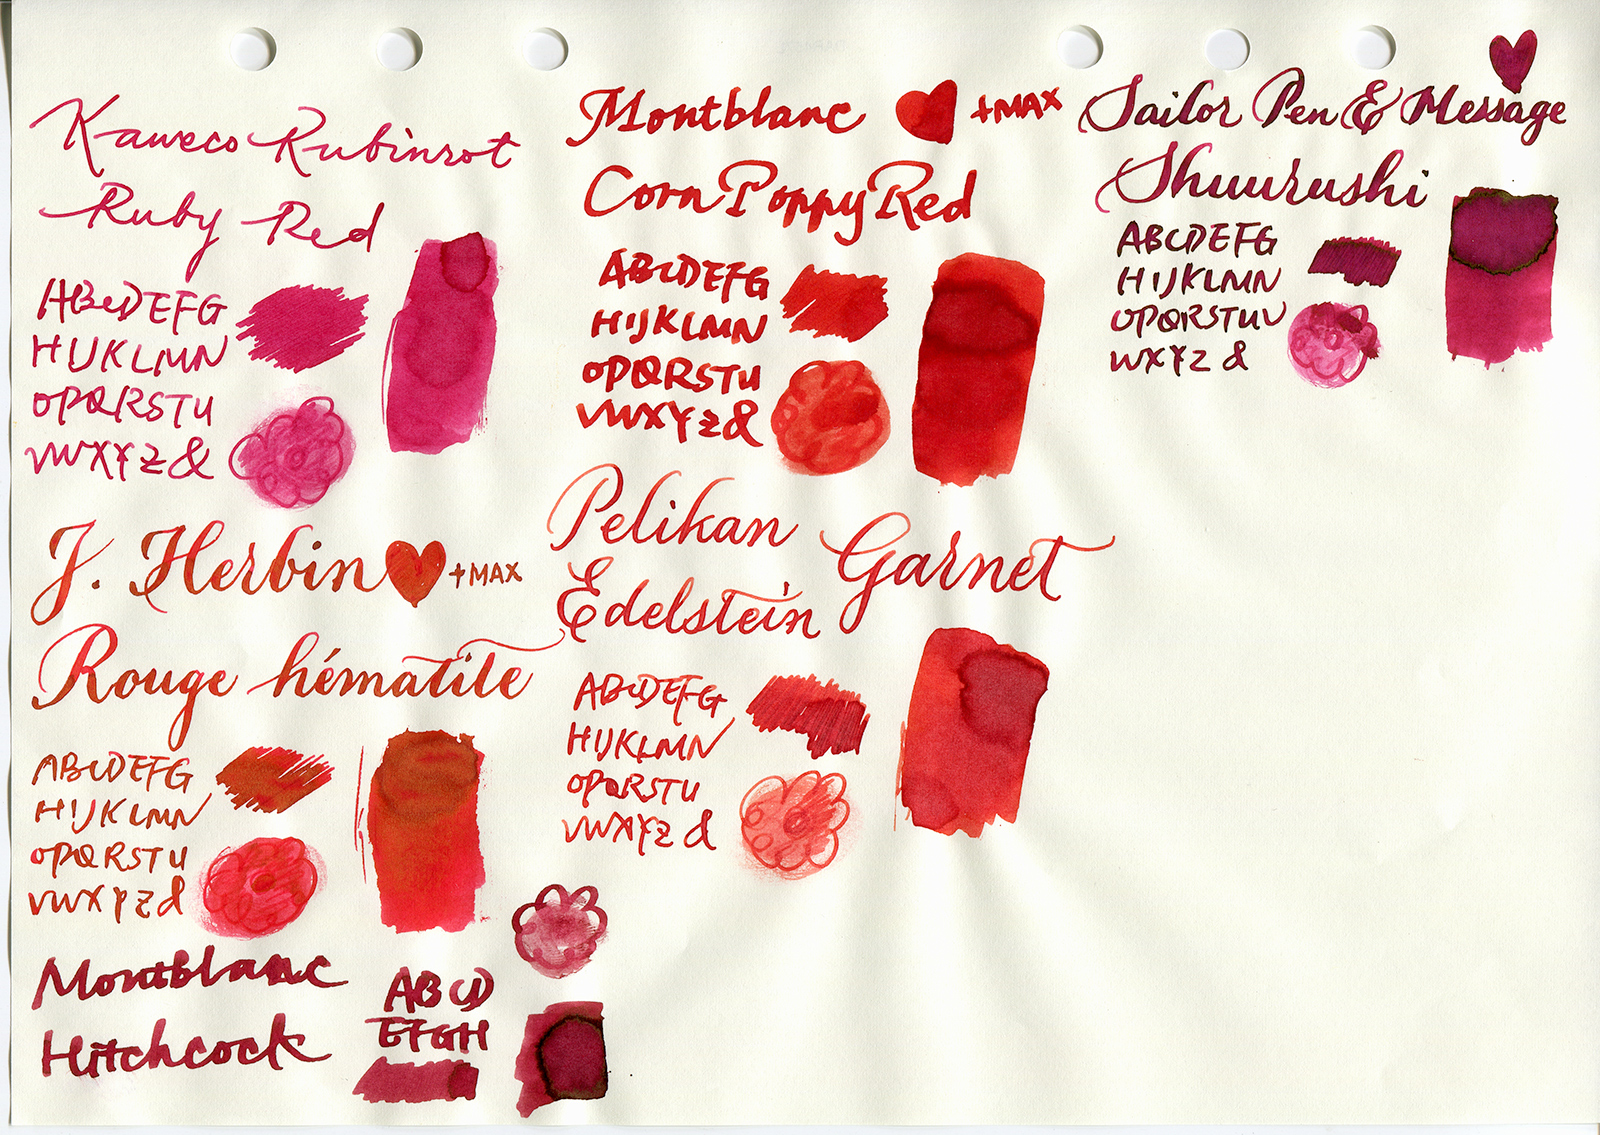 Kaweco Rubinrot
Ruby Red
ABCDEFG
HIJKLMN
OPQRSTU
VWXYZ&
J. Herbin +MAX
Rouge hématite
ABCDEFG
HIJKLMN
OPQRSTU
VWXYZ&
Montblanc
Hitchcock
ABCD
EFGH
Montblanc +MAX
Corn Poppy Red
ABCDEFG
HIJKLMN
OPQRSTU
VWXYZ&
Pelikan
Edelstein Garnet
ABCDEFG
HIJKLMN
OPQRSTU
VWXYZ &
Sailor Pen & Message
Shuurushi
ABCDEFG
HIJKLMN
OPQRSTUV
WXYZ &